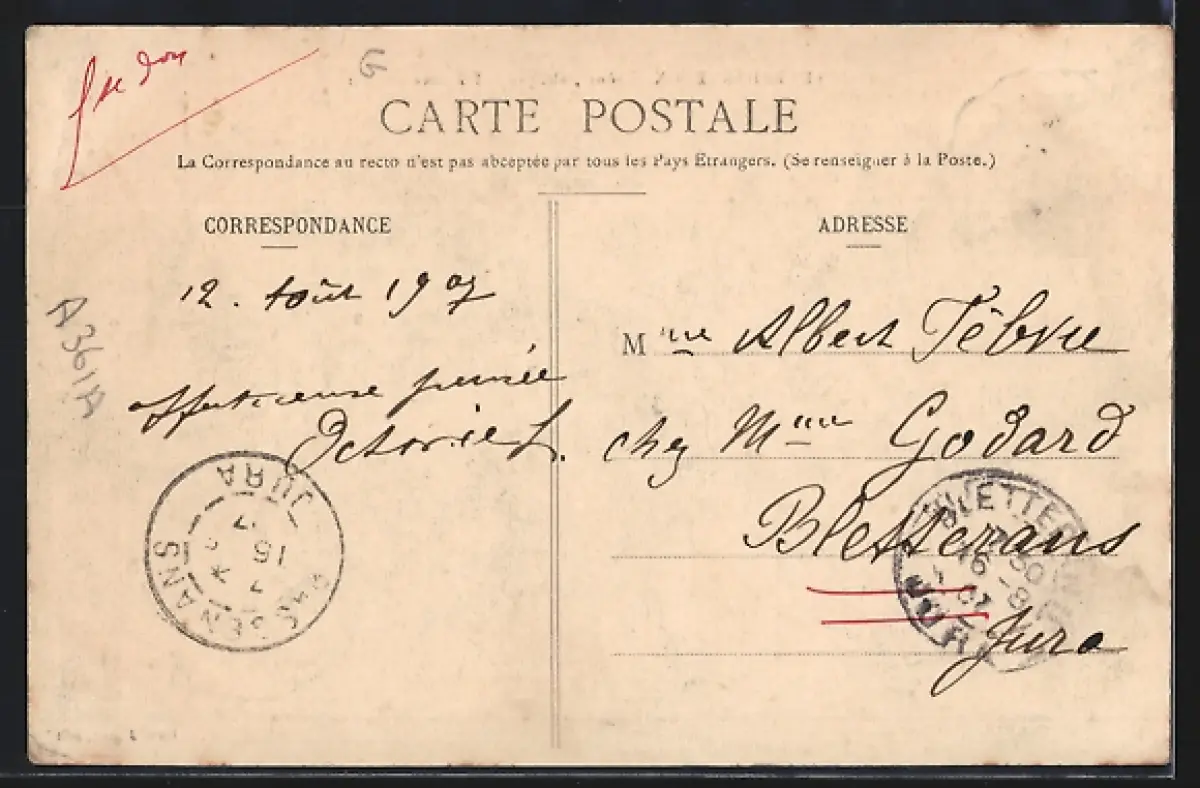 G
CARTE POSTALE
La Correspondance au recto n'est pas acceptée par tous les Pays Étrangers. (Se renseigner à la Poste.)
CORRESPONDANCE
12. Août 1907
affectueuse pensée
A361A
PASSENANS
JURA
15
ADRESSE
Mme Albert Fèbvre
chez Mme Godard
Bletterans
Jura
BLETTERANS
16 -8
07
JURA